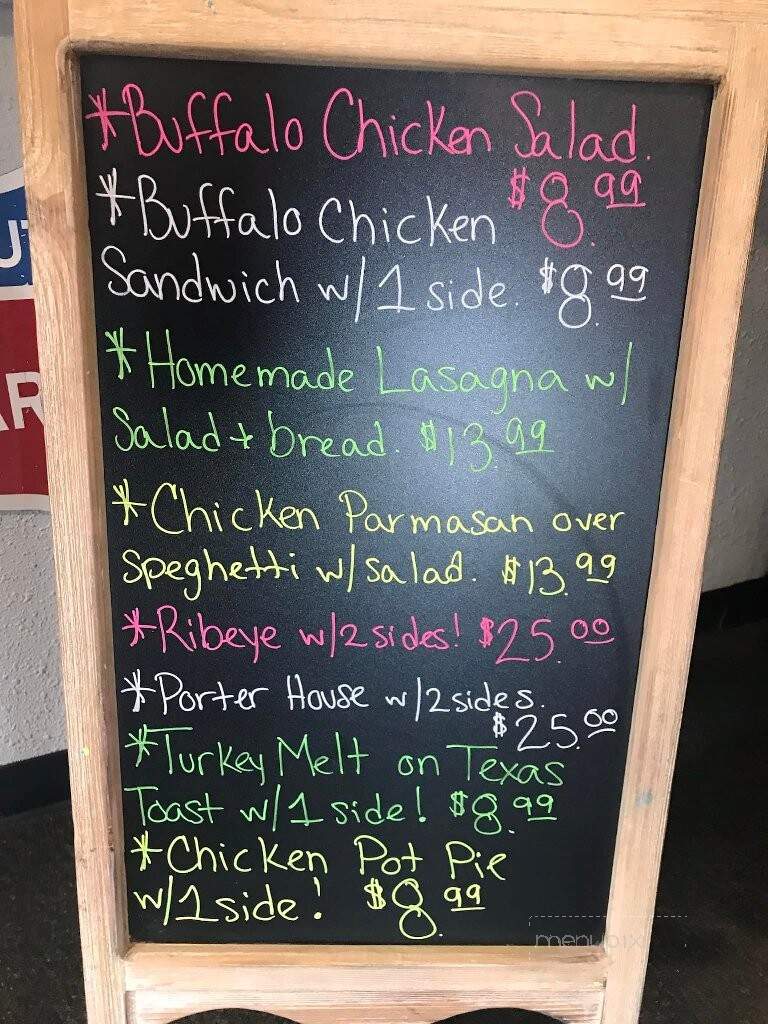 *Buffalo Chicken Salad.
$8.99
*Buffalo Chicken
Sandwich w/1 side. $8.99
*Homemade Lasagna w/
Salad + bread. $13.99
*Chicken Parmasan over
speghetti w/salad. $13.99
*Ribeye w/2 sides! $25.00
*Porter House w/2 sides.
$25.00
*Turkey Melt on Texas
Toast w/1 side! $8.99
*Chicken Pot Pie
w/1 side! $8.99
menupix